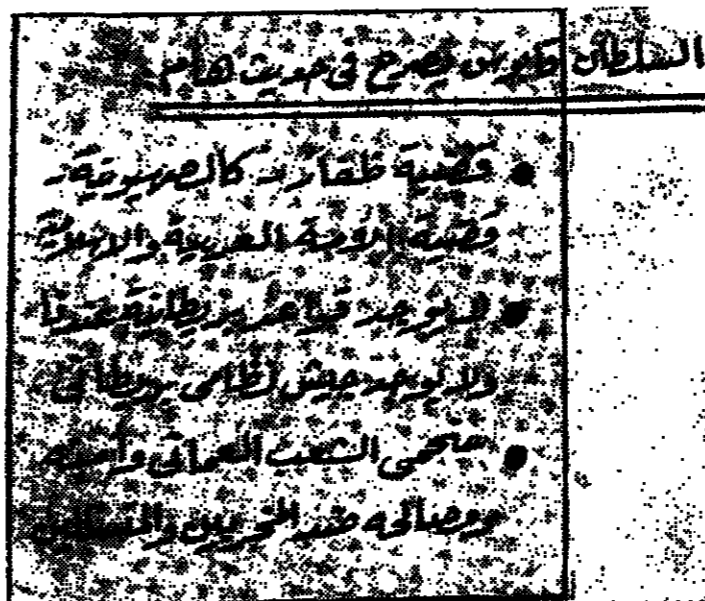 السلطان قابوس يصرح في حديث هام:
• قضية ظفار .. كالصهيونية ..
قضية الأمة العربية والاسلامية
• لا توجد قواعد بريطانية عندنا
ولا يوجد جيش نظامي بريطاني
• سنحمي الشعب العماني وأمنه
ومصالحه ضد المخربين والمتسللين